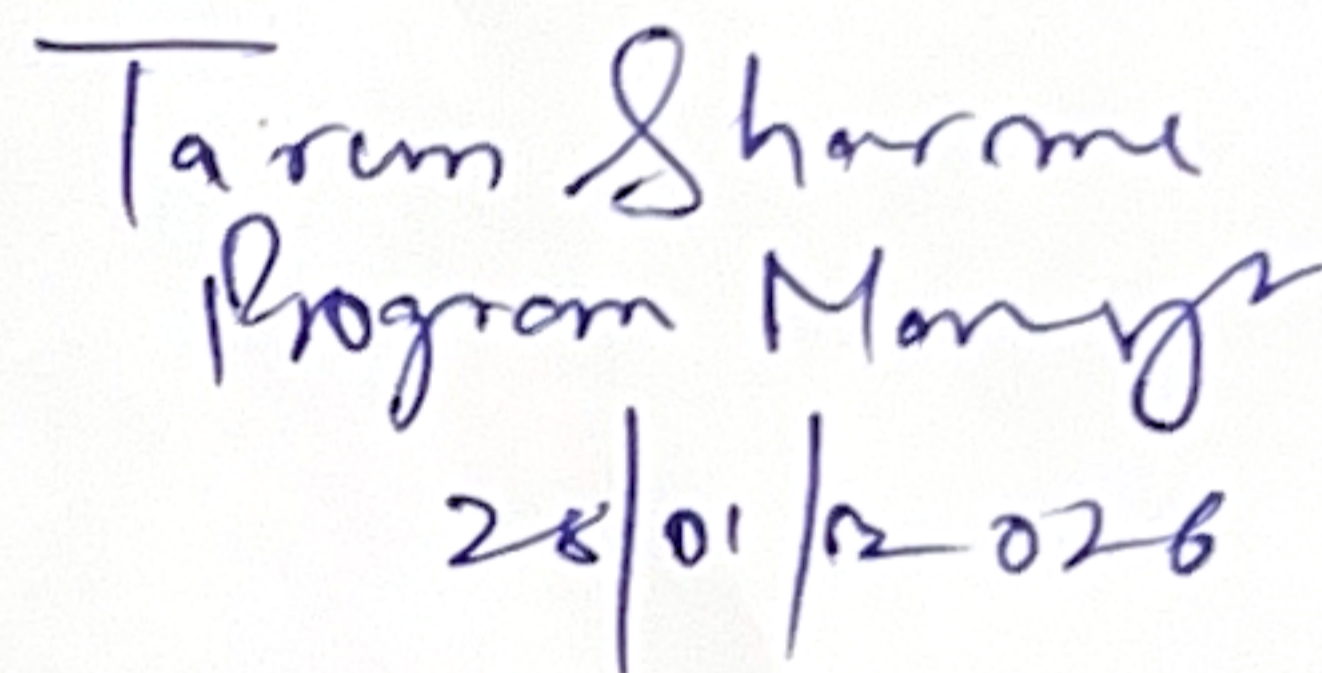 Tarun Sharma
Program Manager
28/01/2026